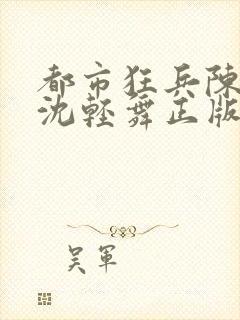 都市狂兵陳
沈輕舞正版
吴軍